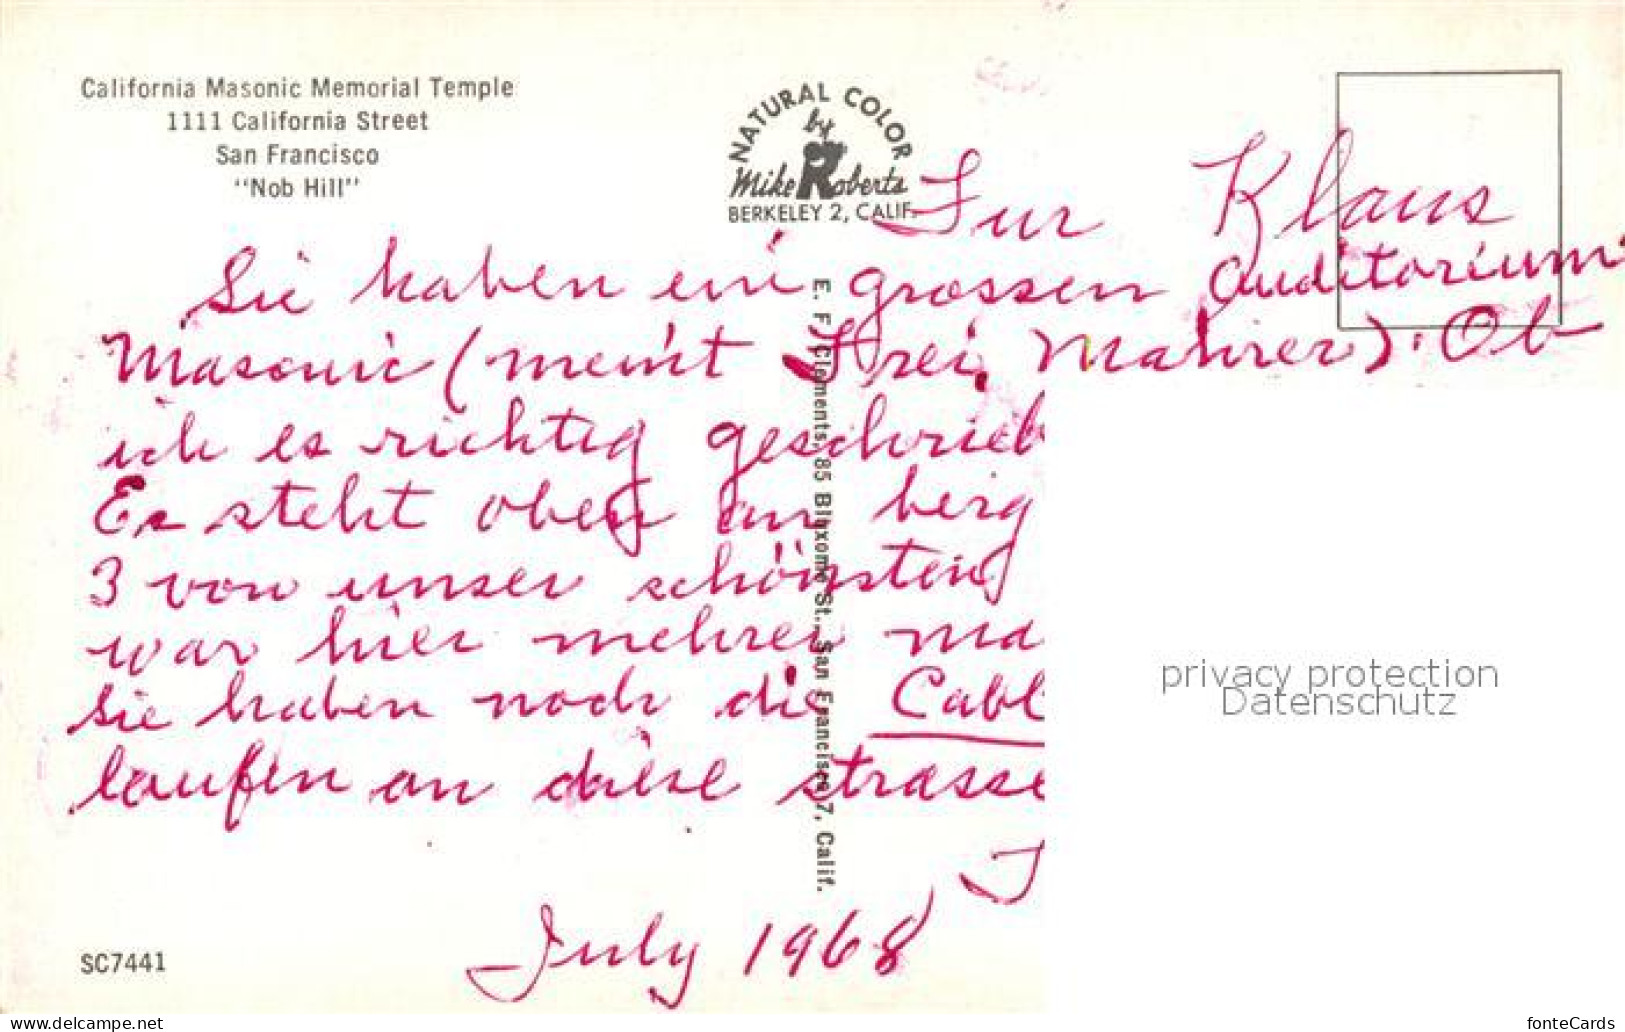 California Masonic Memorial Temple
1111 California Street
San Francisco
"Nob Hill"
NATURAL COLOR
by
Mike Roberts
BERKELEY 2, CALIF.
Fur Klaus
Sie haben ein grossen Auditorium
Masonic (meint Frei Mahrer). Ob
ich es richtig geschrieb
Es steht oben an berg
3 von unser schönsten
war hier mehrer ma
Sie haben noch die Cabl
laufen an diese strasse
July 1968
E. F. Clements, 85 Bluxome St., San Francisco 7, Calif.
SC7441
privacy protection
Datenschutz
www.delcampe.net
fonteCards